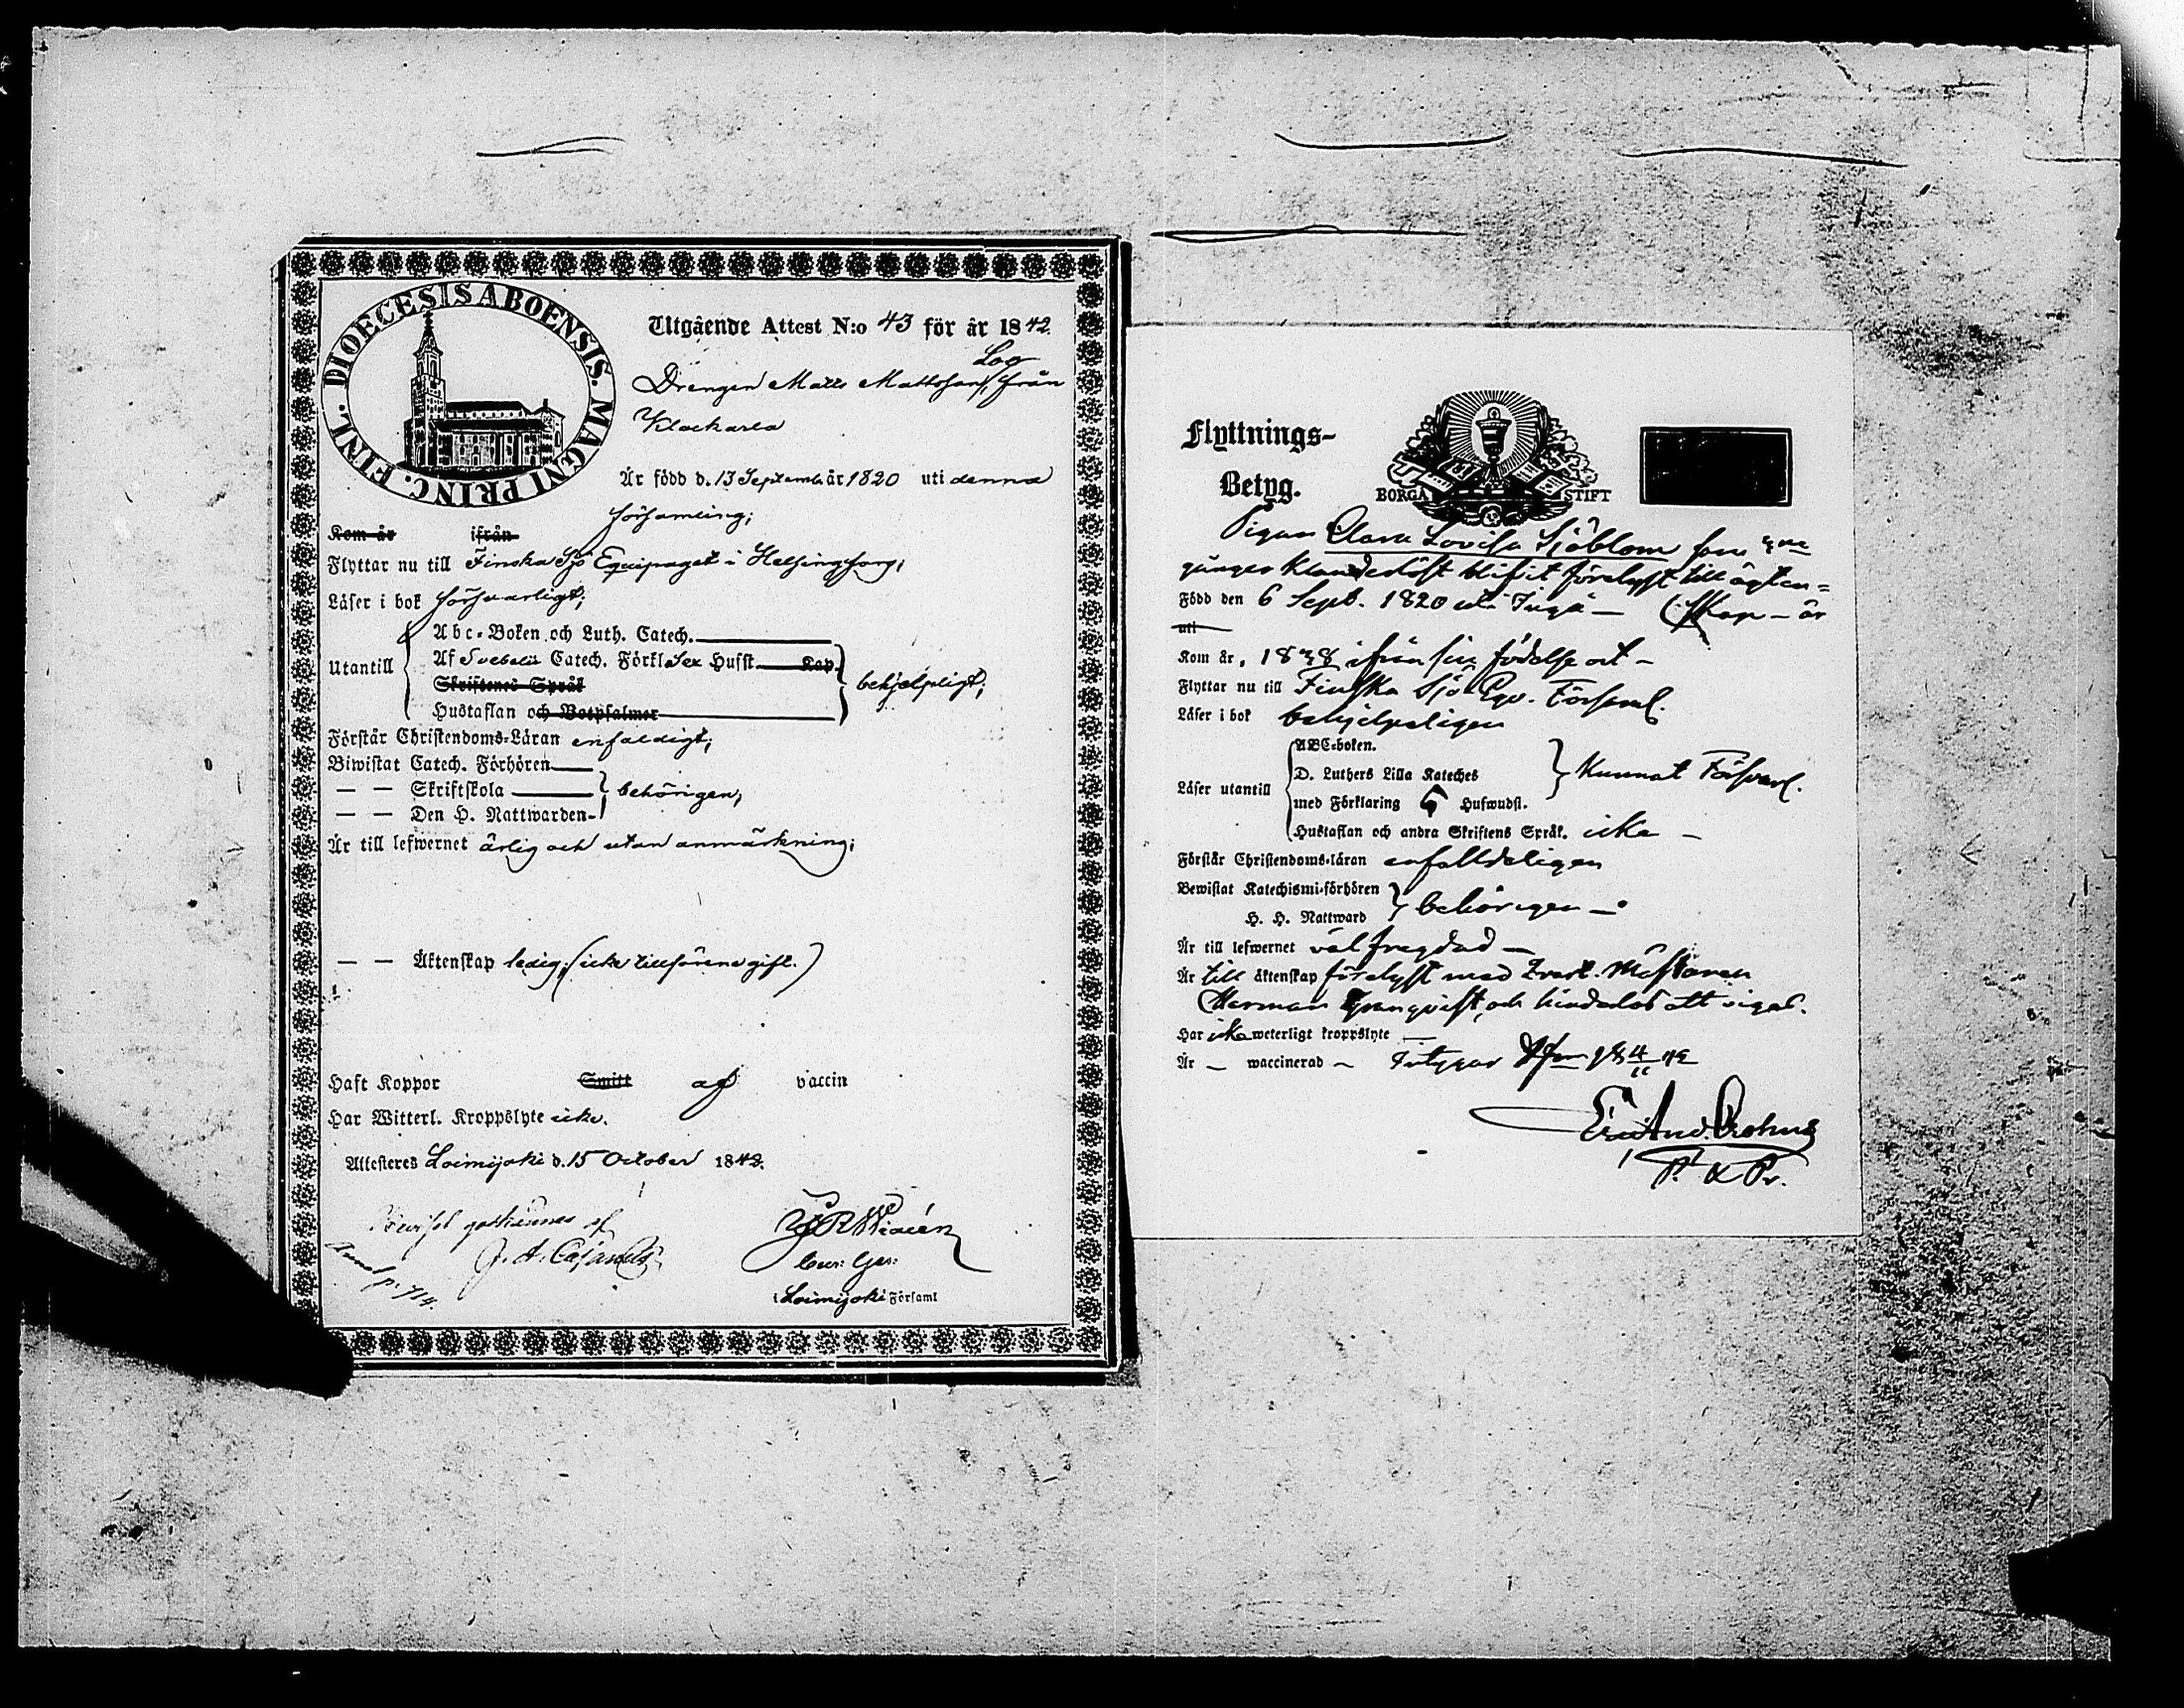 DIOECESIS ABOENSIS. MAGNI PRINC. FINL.
Utgående Attest N:o 43 för år 1842
Log
Drengen Matts Mattsson, från
Klockarla
Är född d. 13 Septemb. år 1820 uti denna
församling;
Kom år ifrån
Flyttar nu till Finska Sjö Equipaget i Helsingfors;
Läser i bok försvarligt;
Utantill
Abc-Boken och Luth. Catech.
Af Svebelii Catech. Förkl. Sex Hufst. Kap.
Skriftenes Språk
Hustaflan och Botpsalmer
behjelpligt;
Förstår Christendoms-Läran enfaldigt;
Biwistat Catech. Förhören
— — Skriftskola
behörigen;
— — Den H. Nattwarden
Är till lefwernet ärlig och utan anmärkning;
— — Äktenskap ledig; (icke tillförene gift.)
Haft Koppor Smitt af vaccin
Har Witterl. Kroppslyte icke.
Attesteras Loimijoki d. 15 October 1842.
J. A. Cajander
Anml p. 714.
Loimijoki Församl
Flyttnings-
Betyg.
BORGÅ STIFT
Pigan Clara Lovisa Sjöblom som
gånger klanderlöst blifvit förelyst till ägten=
Född den 6 Sept. 1820 uti Ingå — (skap — är
uti
Kom år, 1838 ifrån sin födelse ort —
Flyttar nu till Finska Sjö Eqv. Församl.
Läser i bok behjelpeligen
Läser utantill
ABC-boken.
D. Luthers Lilla Kateches
med Förklaring 5 Hufwudst.
Kunnat Försvarl.
Hustaflan och andra Skriftens Språk. icke —
Förstår Christendoms-läran enfalldeligen
Bewistat Katechismi-förhören
H. H. Nattward
behörigen —
Är till lefwernet väl frägdad —
Är till äktenskap förelyst med
Herman Granqvist, och hinderlös att vigas.
Har icke weterligt kroppslyte —
Är — waccinerad —